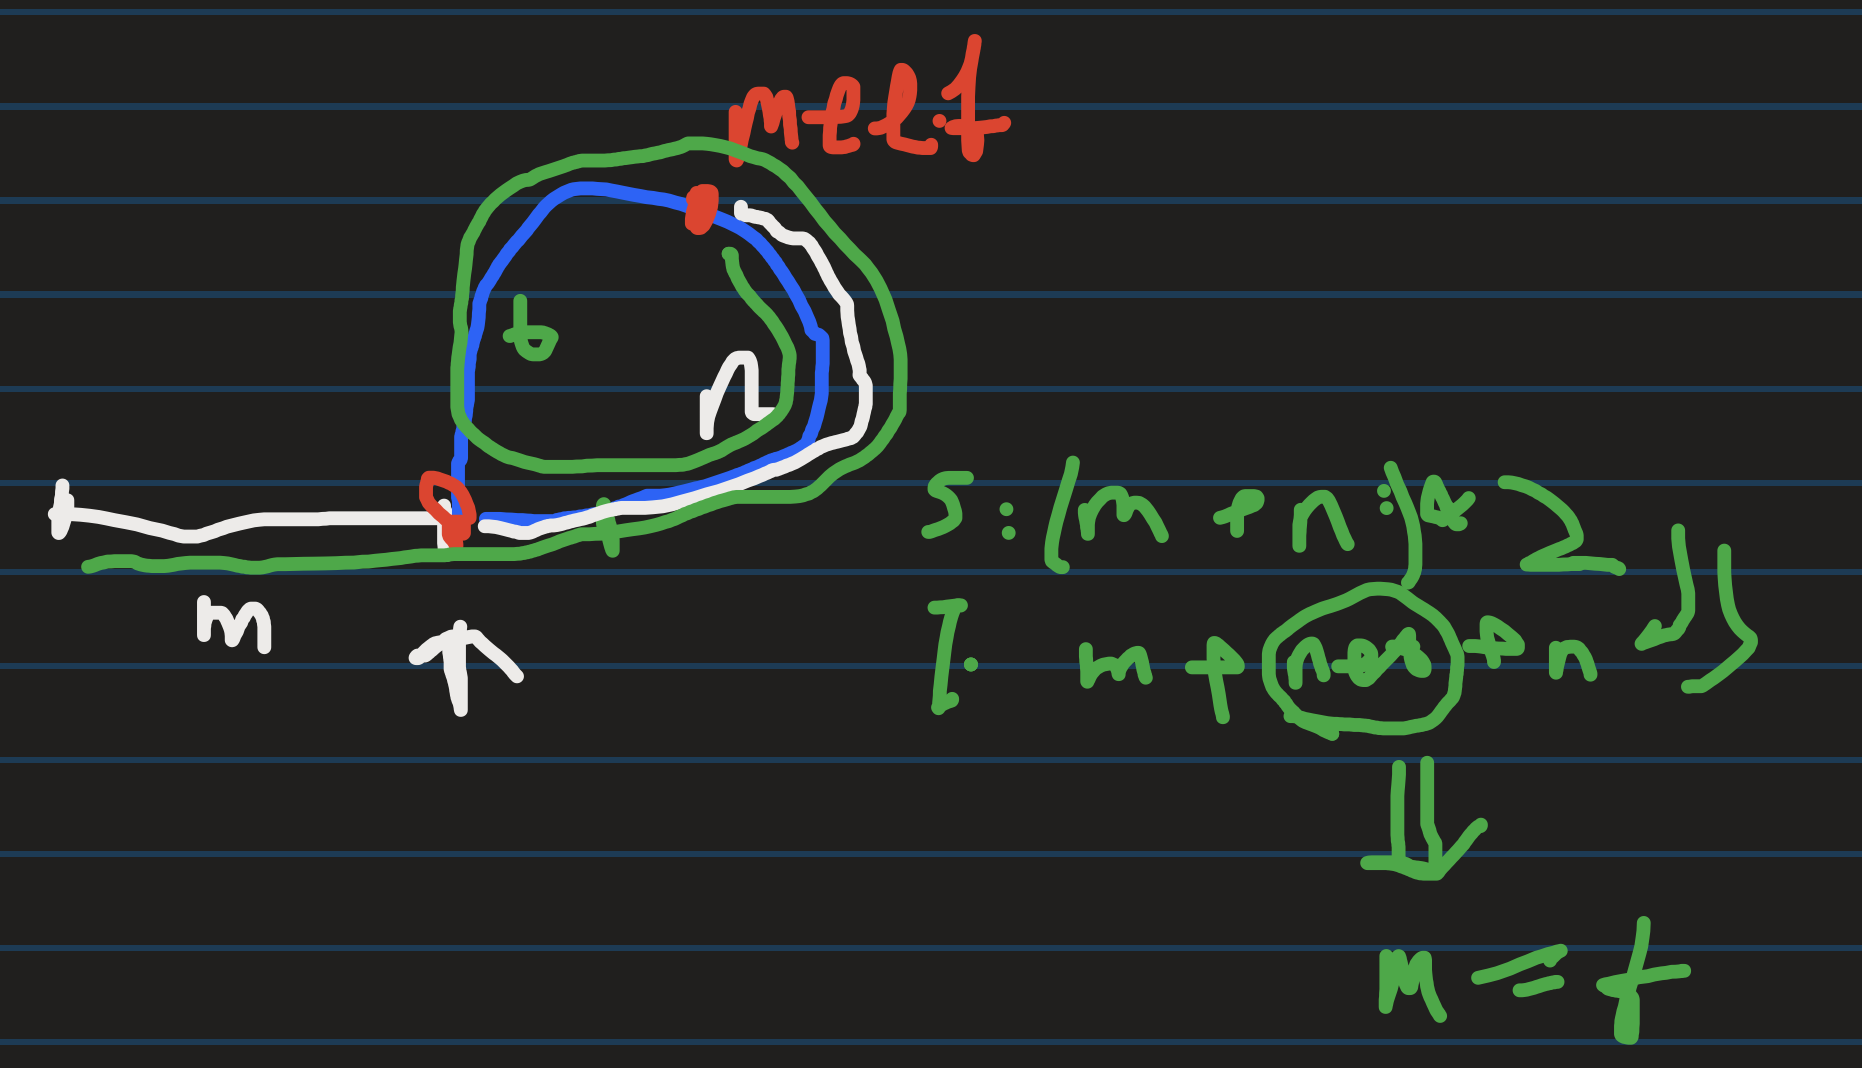 meet
t
n
m
S: (m + n) * 2
f: m + n + n
m = t